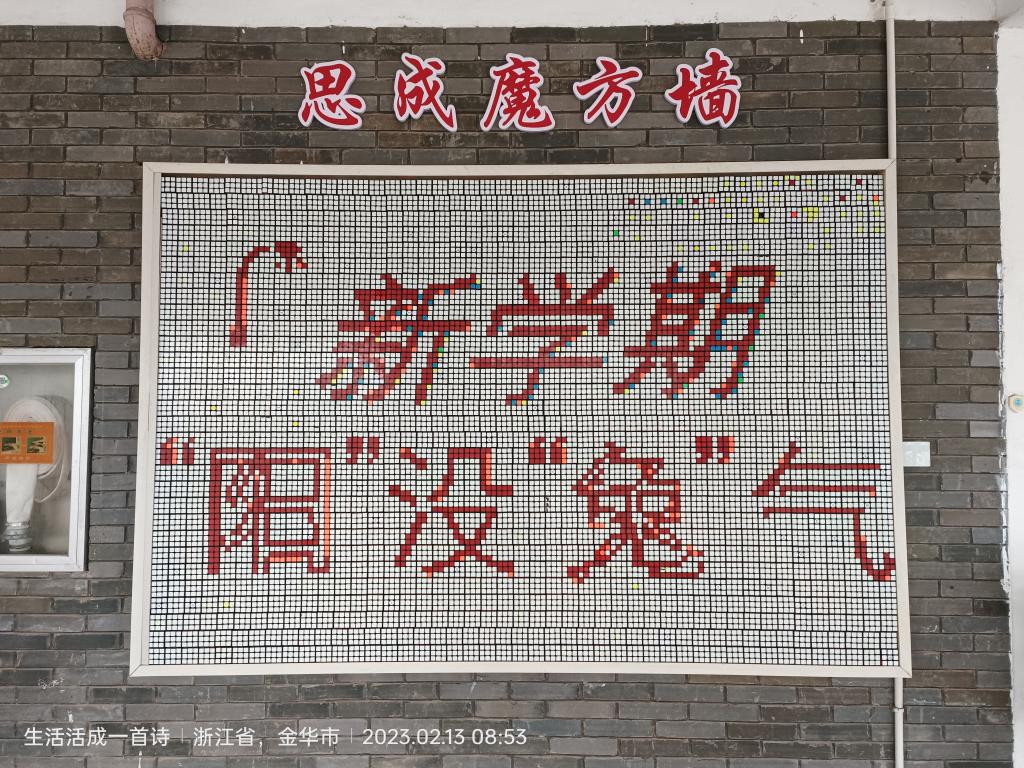 思成魔方墙
新学期
“阳”没“兔”气
生活活成一首诗｜浙江省，金华市｜2023.02.13 08:53